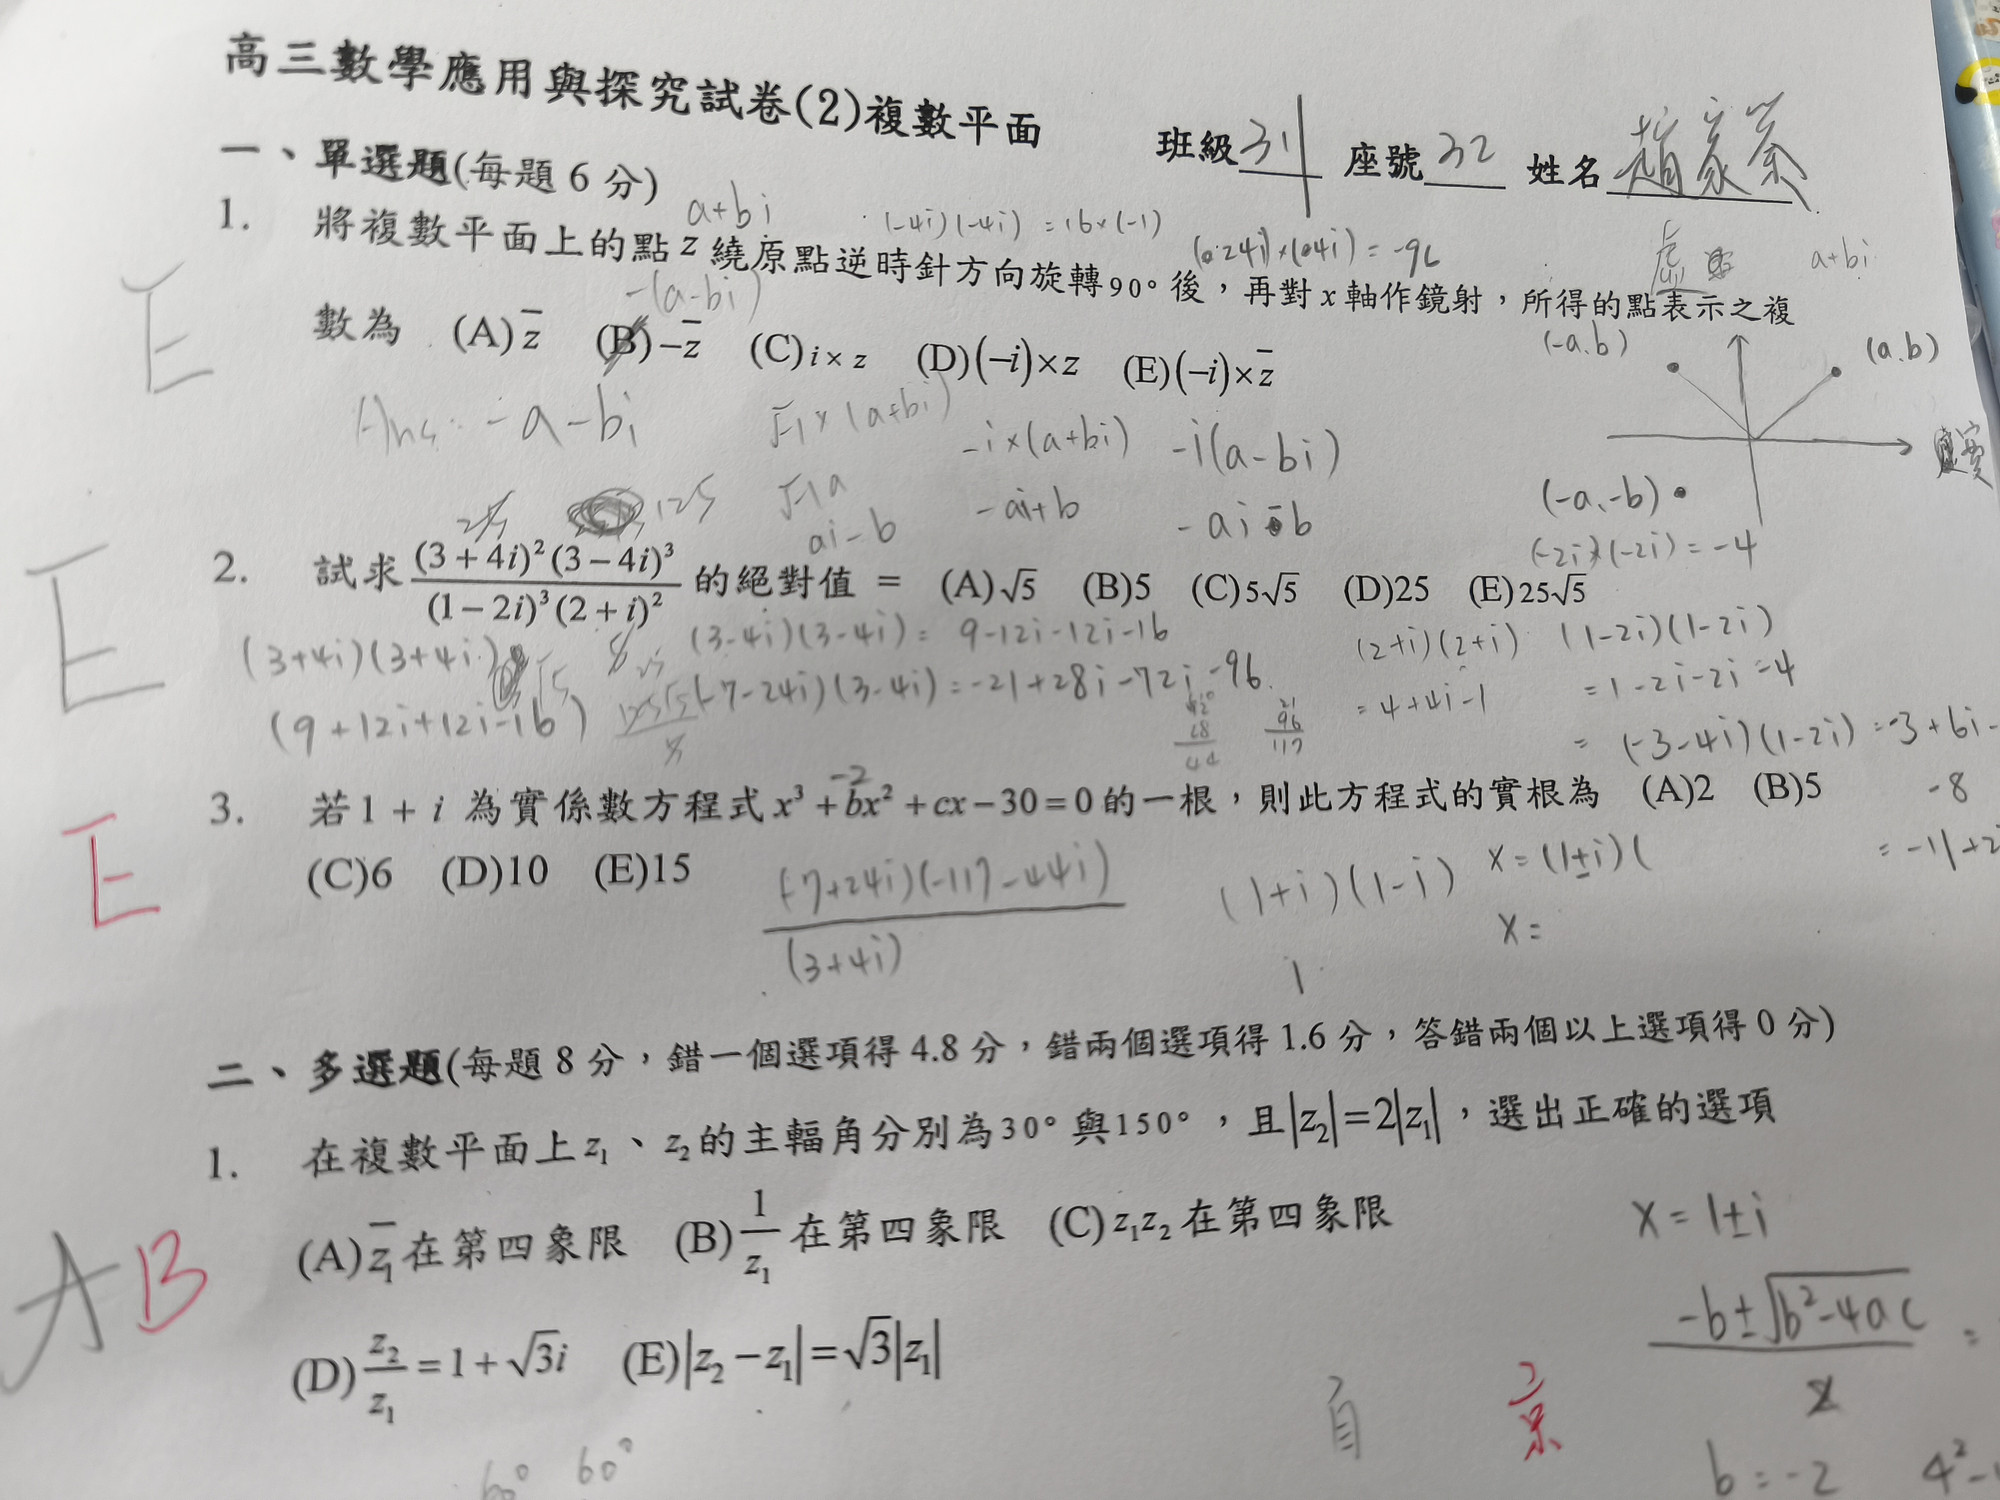 高三數學應用與探究試卷(2)複數平面
班級 311 座號 32 姓名
一、單選題(每題 6 分)
a+bi
(-4i)(-4i) = 16×(-1)
1. 將複數平面上的點 z 繞原點逆時針方向旋轉90°後，再對 x 軸作鏡射，所得的點表示之複
-(a-bi)
虛
a+bi
E
數為 (A) z̅ (B) −z̅ (C) i×z (D) (−i)×z (E) (−i)×z̅
(-a.b)
(a.b)
Ans: -a-bi
√-1×(a+bi)
-i×(a+bi)
-i(a-bi)
實
√-1a
ai-b
-ai+b
-ai-b
(-a.-b)
(-2i)×(-2i) = -4
25
125
E
2. 試求 (3+4i)²(3−4i)³ / (1−2i)³(2+i)² 的絕對值 = (A)√5 (B)5 (C)5√5 (D)25 (E)25√5
(3+4i)(3+4i)
(3-4i)(3-4i) = 9-12i-12i-16
(2+i)(2+i)
(1-2i)(1-2i)
(9+12i+12i-16)
(-7-24i)(3-4i) = -21+28i-72i-96
= 4+4i-1
= 1-2i-2i-4
21
96
117
= (-3-4i)(1-2i) = -3+6i-
-8
-2
E
3. 若1 + i 為實係數方程式 x³ + bx² + cx − 30 = 0 的一根，則此方程式的實根為 (A)2 (B)5
(C)6 (D)10 (E)15
= -11+2
(-7+24i)(-117-44i)
(3+4i)
(1+i)(1-i)
x = (1±i)(
x =
二、多選題(每題 8 分，錯一個選項得 4.8 分，錯兩個選項得 1.6 分，答錯兩個以上選項得 0 分)
1. 在複數平面上 z₁、z₂的主輻角分別為30°與150°，且|z₂|=2|z₁|，選出正確的選項
AB
(A) z̅₁ 在第四象限 (B) 1/z₁ 在第四象限 (C) z₁z₂ 在第四象限
x = 1±i
(D) z₂/z₁ = 1+√3i (E) |z₂−z₁| = √3|z₁|
-b±√b²-4ac
=
2
60° 60°
b = -2
4²-